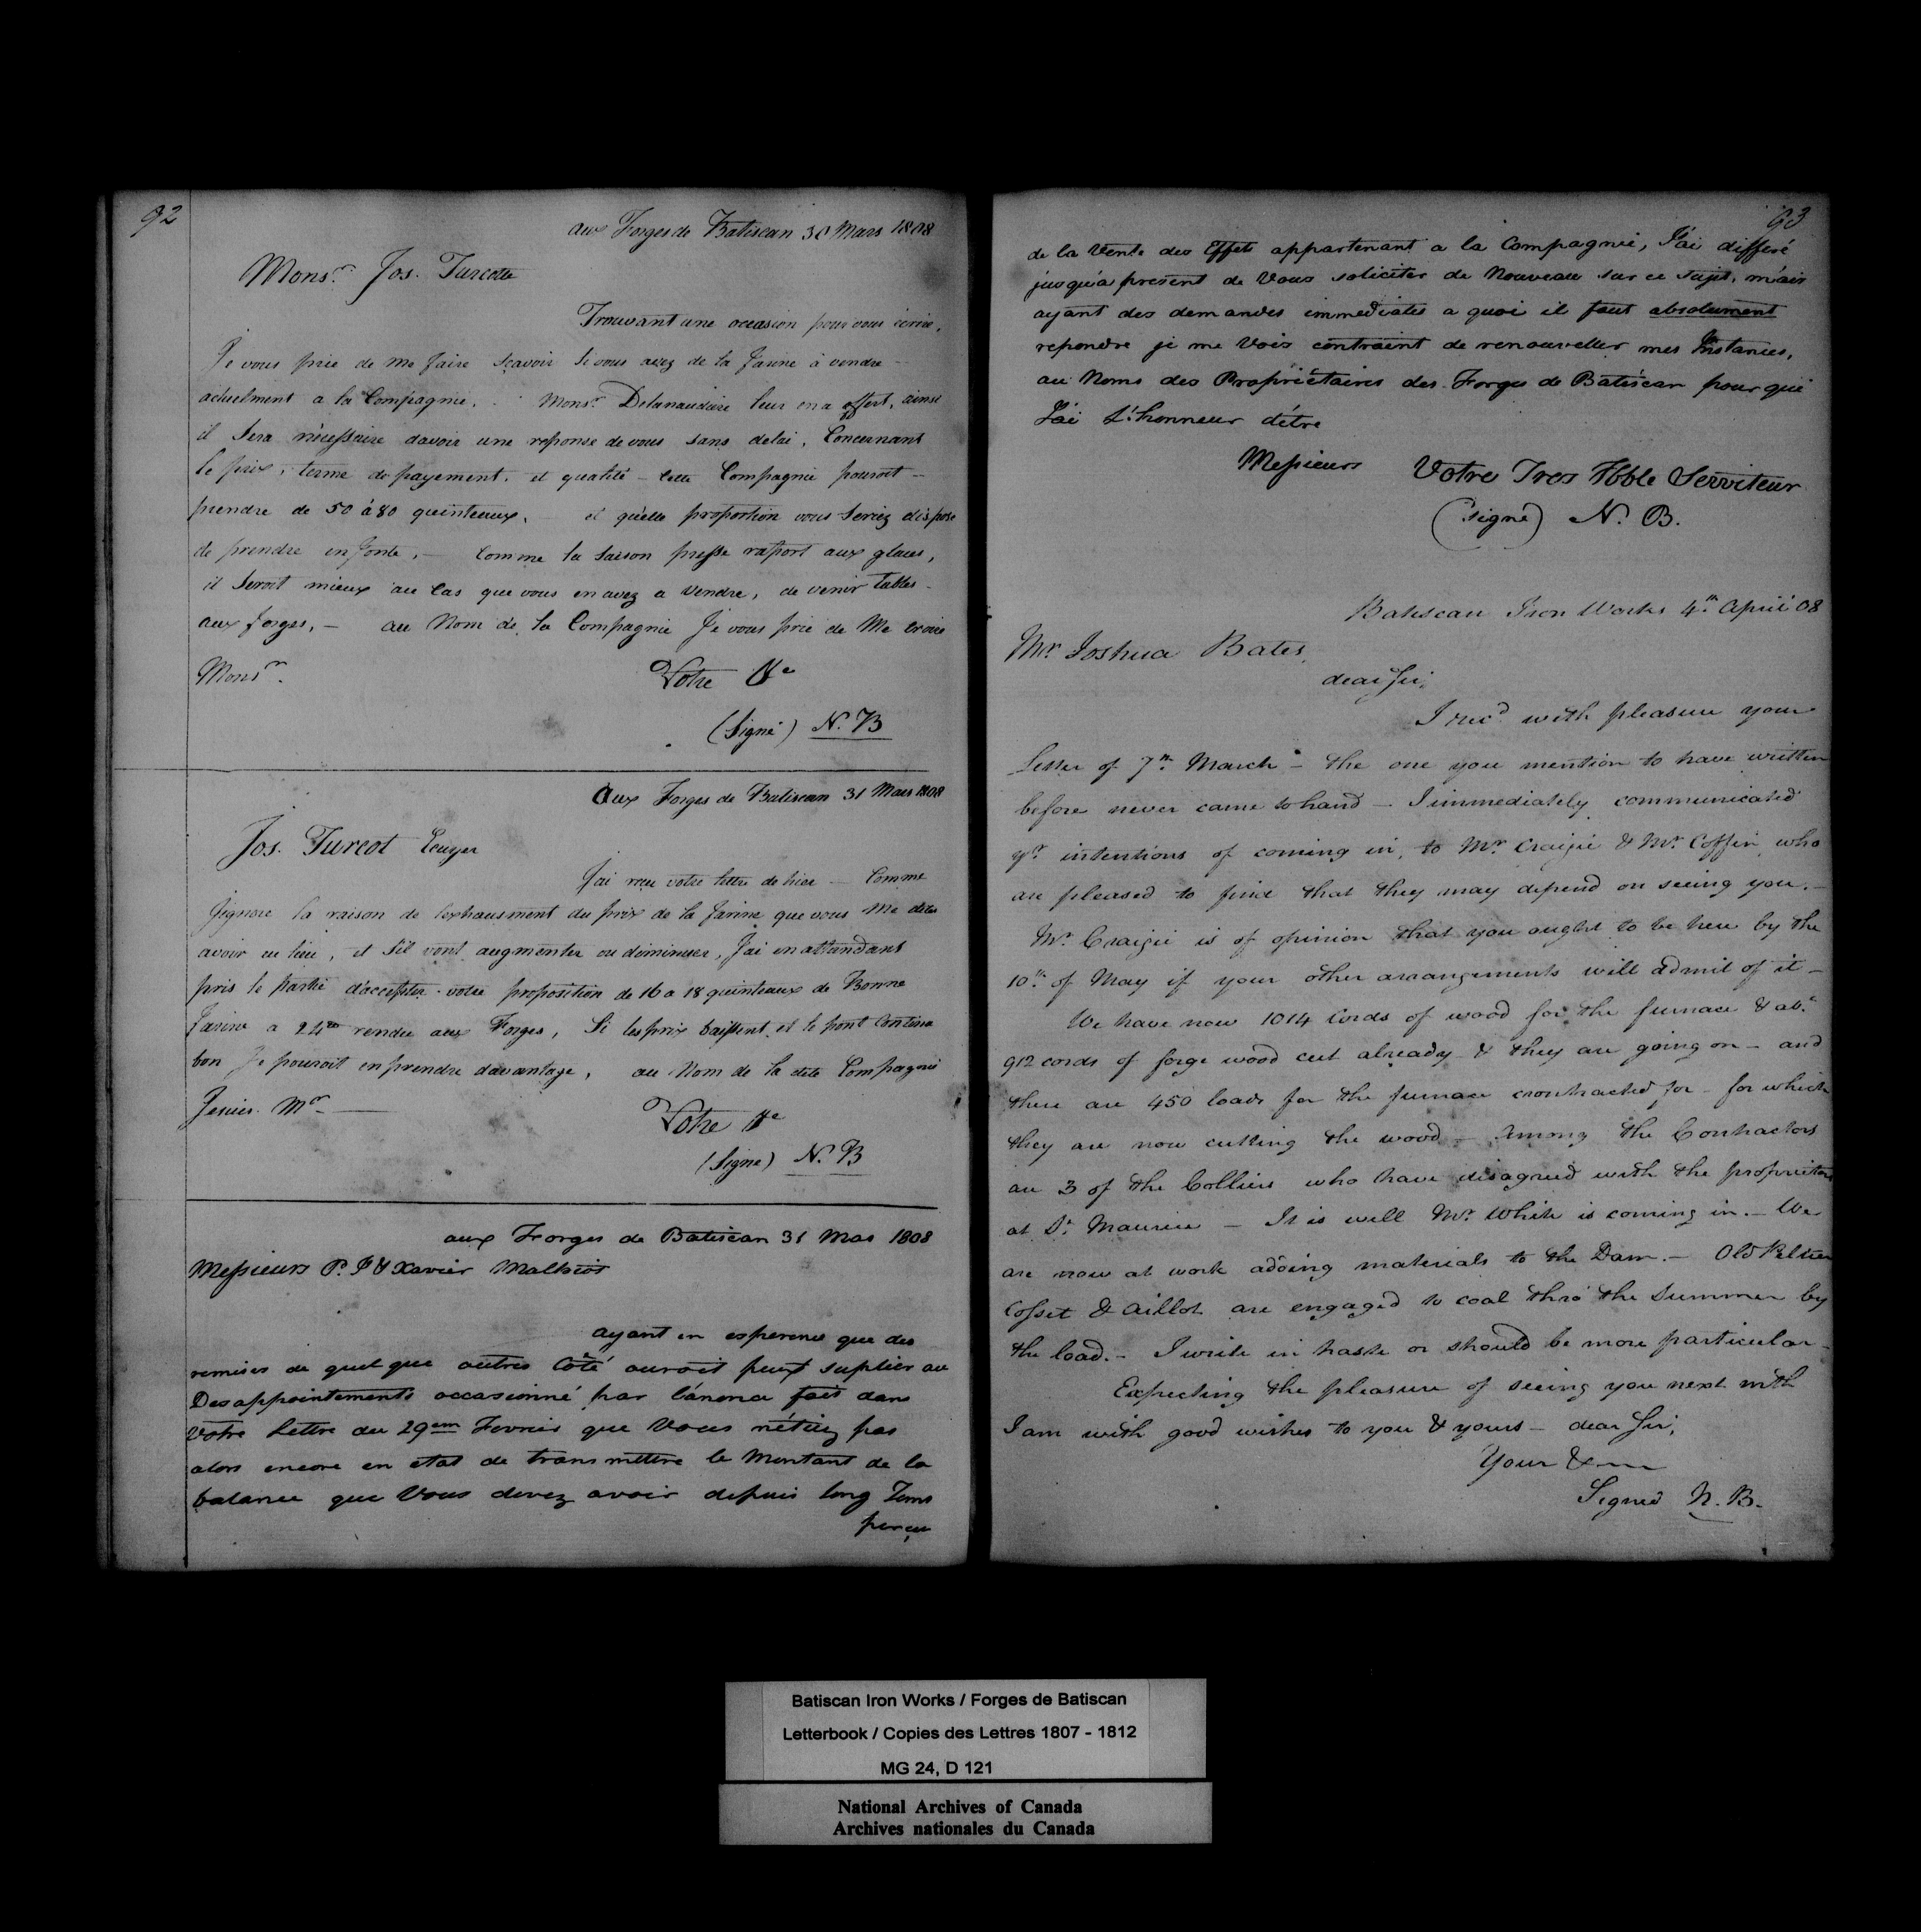 92
aux Forges de Batiscan 30 Mars 1808
Monsr. Jos. Turcotte
Trouvant une occasion pour vous écrire,
Je vous prie de me faire sçavoir si vous avez de la farine à vendre
actuelment a la Compagnie. Monsr. Delanaudiere leur en a offert, ainsi
il sera nécessaire davoir une reponse de vous sans delai, Concernant
le prix, terme de payement, et qualité – cette Compagnie pouroit –
prendre de 50 à 80 quinteaux. – et quelle proportion vous seriez dispose
de prendre en fonte. – Comme la saison presse raport aux glaces,
il seroit mieux au cas que vous en avez a vendre, de venir
aux forges, – au Nom de la Compagnie Je vous prie de me croire
Monsr.
Votre &c
(Signé) N. B
Aux Forges de Batiscan 31 Mars 1808
Jos. Turcot Ecuyer
J'ai reçu votre lettre de hier – Comme
J'ignore la raison de lexhausment du prix de la farine que vous me dites
avoir eu lieu, et s'il vont augmenter ou diminuer, J'ai en attendant
pris le partie d'accepter votre proposition de 16 a 18 quinteaux de Bonne
farine a 24 rendre aux Forges, Si les prix baissent et le pont Continu
bon Je pouroit en prendre davantage, au Nom de la dite Compagnie
Jesuis Mr
Votre &c
(Signé) N. B
aux Forges de Batiscan 31 Mas 1808
Messieurs P. P & Xavier Malhiot
ayant en esperence que des
remises de quelque autres Côté auroit peut suplier au
Desappointements occasionné par l'anonce fait dans
Votre Lettre du 29em Fevrier que Vous nétiez pas
alors encore en etat de transmettre le Montant de la
balance que Vous devez avoir depuis long Tems
perçu
93
de la Vente des Effets appartenant a la Compagnie, J'ai differé
jusqu'a present de Vous soliciter de Nouveau sur ce sujet, mais
ayant des demandes immediates a quoi il faut absolument
repondre je me Vois contraint de renouveller mes Instances,
au Noms des Propriétaires des Forges de Batiscan pour qui
J'ai L'honneur d'étre
Messieurs Votre Tres Hble Serviteur
(signé) N. B.
Batiscan Iron Works 4th. April 08
Mr Joshua Bates,
dear Sir,
I recd. with pleasure your
Letter of 7th March – the one you mention to have written
before never came to hand – I immediately communicated
yr. intentions of coming in, to Mr Craigie & Mr Coffin who
are pleased to find that they may depend on seeing you. –
Mr Craigie is of opinion that you ought to be here by the
10th of May if your other arrangements will admit of it –
We have now 1014 Cords of wood for the furnace & abt.
912 cords of forge wood cut already & they are going on – and
there are 450 loads for the furnace contracted for – for which
they are now cutting the wood – Among the Contractors
are 3 of the Colliers who have disagreed with the proprietors
at St. Maurice – It is well Mr White is coming in. – We
are now at work adding materials to the Dam. – Old Peltier
Cosset & Aillot are engaged to coal thro' the Summer by
the load. – I write in haste or should be more particular –
Expecting the pleasure of seeing you next mth
I am with good wishes to you & yours – dear Sir,
Your &c
Signed N. B.
Batiscan Iron Works / Forges de Batiscan
Letterbook / Copies des Lettres 1807 - 1812
MG 24, D 121
National Archives of Canada
Archives nationales du Canada